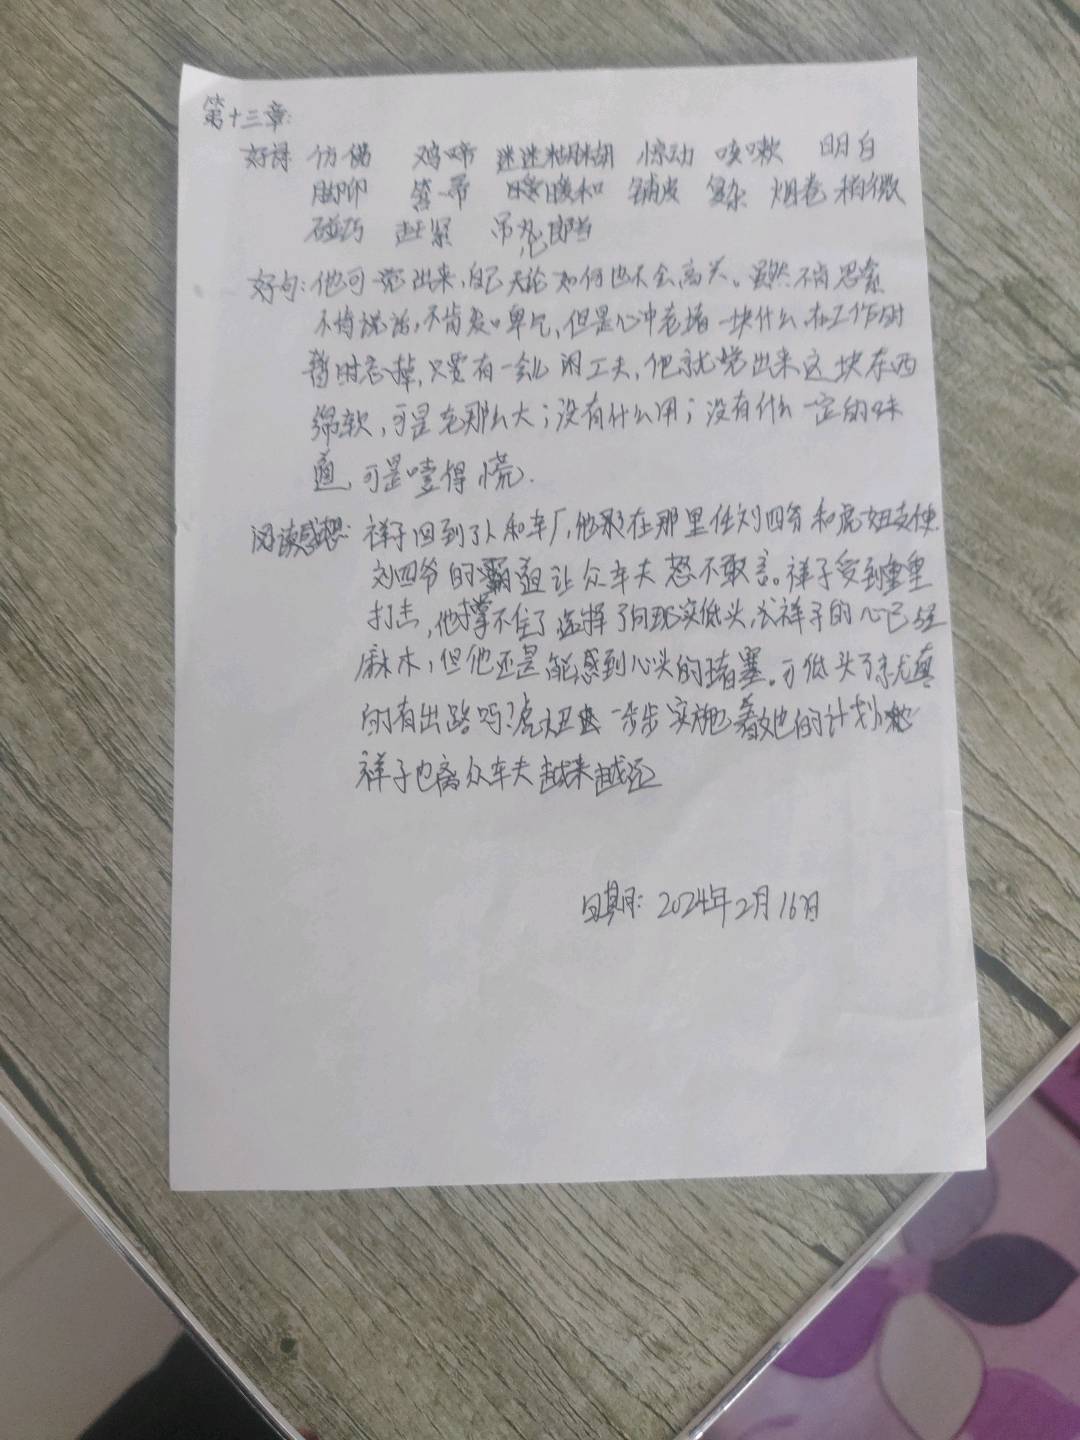 第十三章:
好词 仿佛 鸡啼 迷迷糊糊 惊动 咳嗽 明白
脚印 笤帚 暖暖和和 铺皮 复杂 烟卷 稍微
碰巧 赶紧 吊儿郎当
好句:他可觉出来,自己无论如何也不会高兴。虽然不肯思索
不肯说话,不肯发脾气,但是心中老堵一块什么,在工作时
暂时忘掉,只要有一会儿闲工夫,他就觉出来这块东西
绵软,可是老那么大;没有什么用;没有什么一定的味
道,可是噎得慌.
阅读感想:祥子回到了人和车厂,他在那里任刘四爷和虎妞支使.
刘四爷的霸道让众车夫怒不敢言。祥子受到重重
打击,他撑不住了,选择了向现实低头,祥子的心已经
麻木,但他还是能感到心头的堵塞。可低头了就真
的有出路吗?虎妞一步步实施着她的计划
祥子也离众车夫越来越远
日期: 2024年2月16日